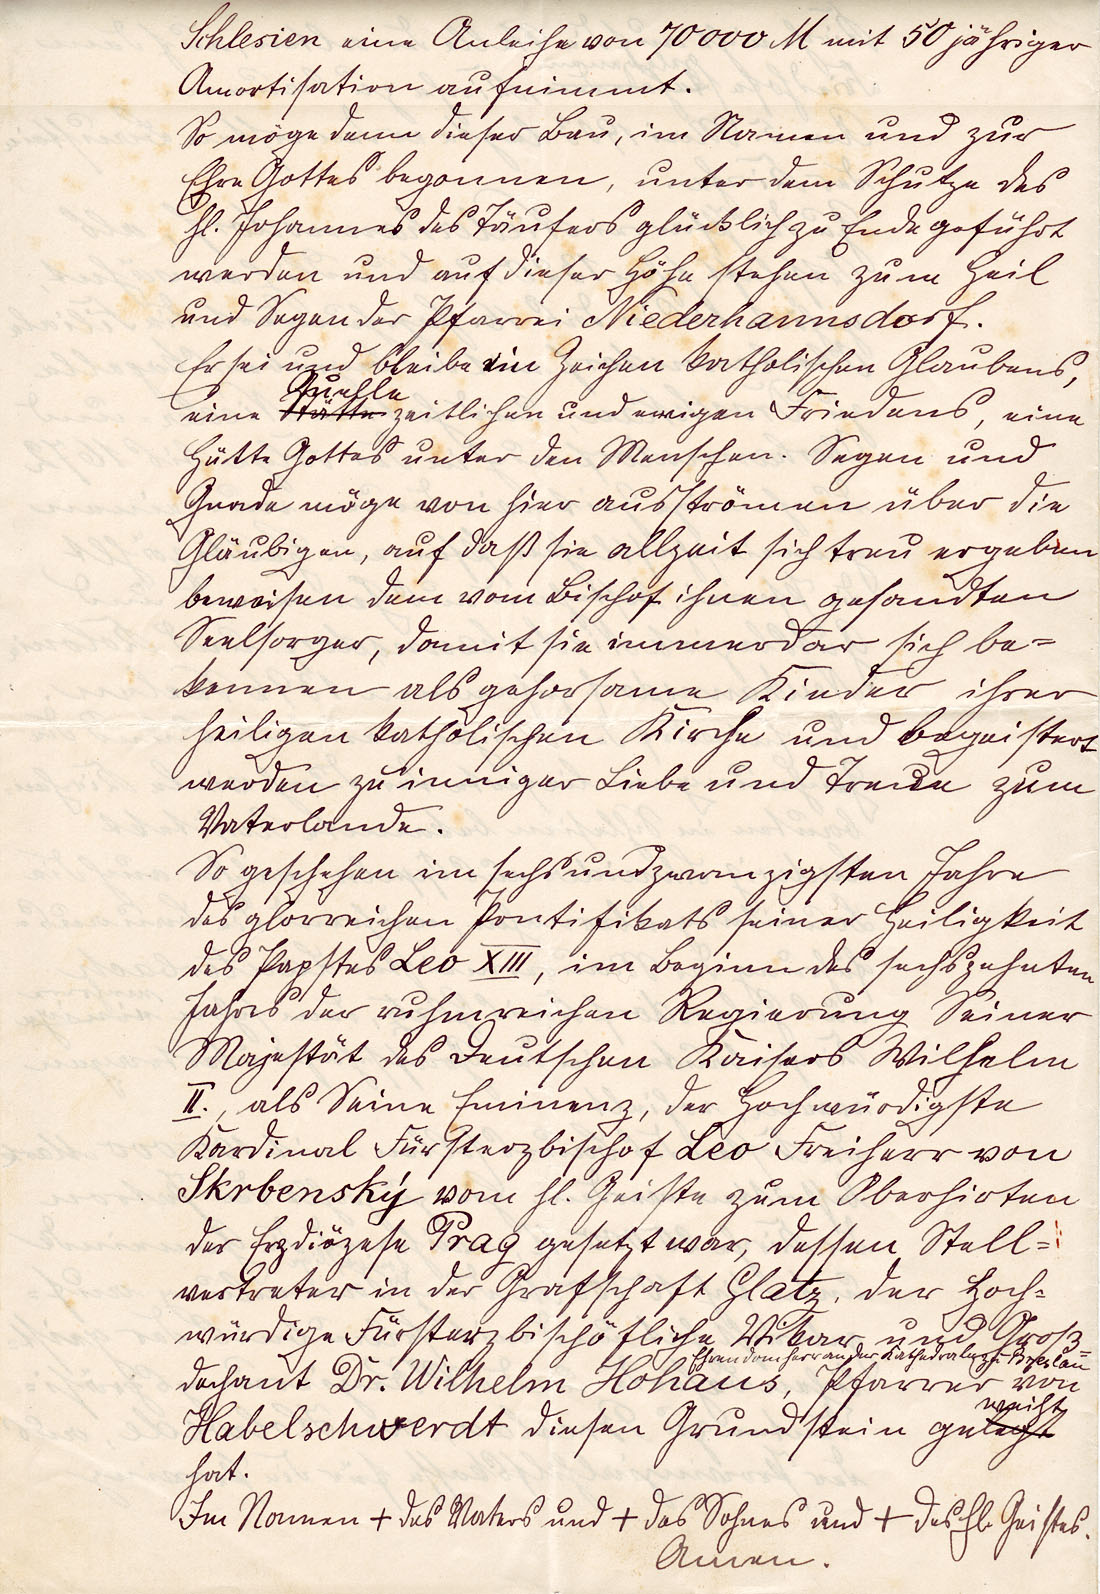 Schlesien eine Anleihe von 70000 M mit 50 jähriger
Amortisation aufnimmt.
So möge denn dieser Bau, im Namen und zur
Ehre Gottes begonnen, unter dem Schutze des
hl. Johannes des Täufers glücklich zu Ende geführt
werden und auf dieser Höhe stehen zum Heil
und Segen der Pfarrei Niederhannsdorf.
Er sei und bleibe ein Zeichen katholischen Glaubens,
Quelle
eine Stätte zeitlichen und ewigen Friedens, eine
Hütte Gottes unter den Menschen. Segen und
Gnade möge von hier ausströmen über die
Gläubigen, auf daß sie allzeit sich treu ergeben
beweisen dem vom Bischof ihnen gesandten
Seelsorger, damit sie immerdar sich be=
kennen als gehorsame Kinder ihrer
heiligen katholischen Kirche und begeistert
werden zu inniger Liebe und Treue zum
Vaterlande.
So geschehen im sechsundzwanzigsten Jahre
des glorreichen Pontifikats seiner Heiligkeit
des Papstes Leo XIII, im Beginn des sechszehnten
Jahres der ruhmreichen Regierung Seiner
Majestät des Deutschen Kaisers Wilhelm
II., als Seine Eminenz, der Hochwürdigste
Kardinal Fürsterzbischof Leo Freiherr von
Skrbenský vom hl. Geiste zum Oberhirten
der Erzdiözese Prag gesetzt war, dessen Stell=
vertreter in der Grafschaft Glatz, der Hoch=
würdige Fürsterzbischöfliche Vikar und Groß
Ehrendomherr an der Kathedrale zu Breslau
dechant Dr. Wilhelm Hohaus, Pfarrer von
weiht
Habelschwerdt diesen Grundstein gelegt
hat.
Im Namen + des Vaters und + des Sohnes und + des hl. Geistes.
Amen.